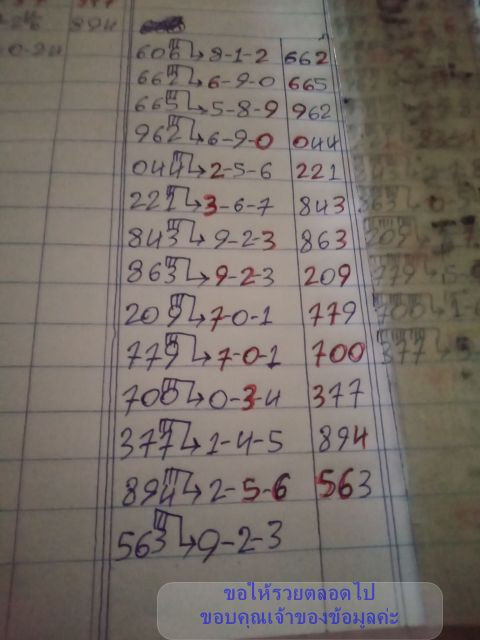 894
606 → 8-1-2 662
662 → 6-9-0 665
665 → 5-8-9 962
962 → 6-9-0 044
044 → 2-5-6 221
221 → 3-6-7 843
843 → 9-2-3 863
863 → 9-2-3 209
209 → 7-0-1 779
779 → 7-0-1 700
700 → 0-3-4 377
377 → 1-4-5 894
894 → 2-5-6 563
563 → 9-2-3
ขอให้รวยตลอดไป
ขอบคุณเจ้าของข้อมูลค่ะ